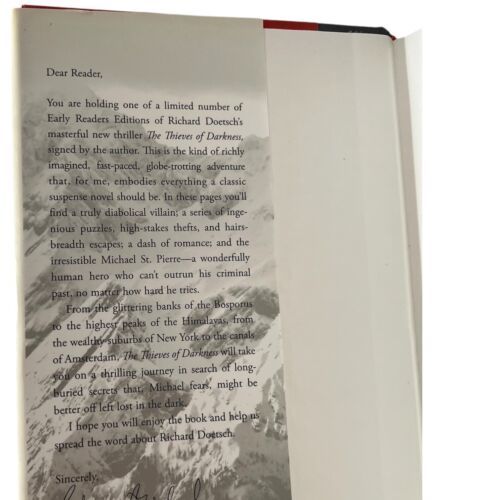 Dear Reader,
You are holding one of a limited number of
Early Readers Editions of Richard Doetsch's
masterful new thriller The Thieves of Darkness,
signed by the author. This is the kind of richly
imagined, fast-paced, globe-trotting adventure
that, for me, embodies everything a classic
suspense novel should be. In these pages you'll
find a truly diabolical villain; a series of inge-
nious puzzles, high-stakes thefts, and hairs-
breadth escapes; a dash of romance; and the
irresistible Michael St. Pierre—a wonderfully
human hero who can't outrun his criminal
past, no matter how hard he tries.
From the glittering banks of the Bosporus
to the highest peaks of the Himalayas, from
the wealthy suburbs of New York to the canals
of Amsterdam, The Thieves of Darkness will take
you on a thrilling journey in search of long-
buried secrets that, Michael fears, might be
better off left lost in the dark.
I hope you will enjoy the book and help us
spread the word about Richard Doetsch.
Sincerely,